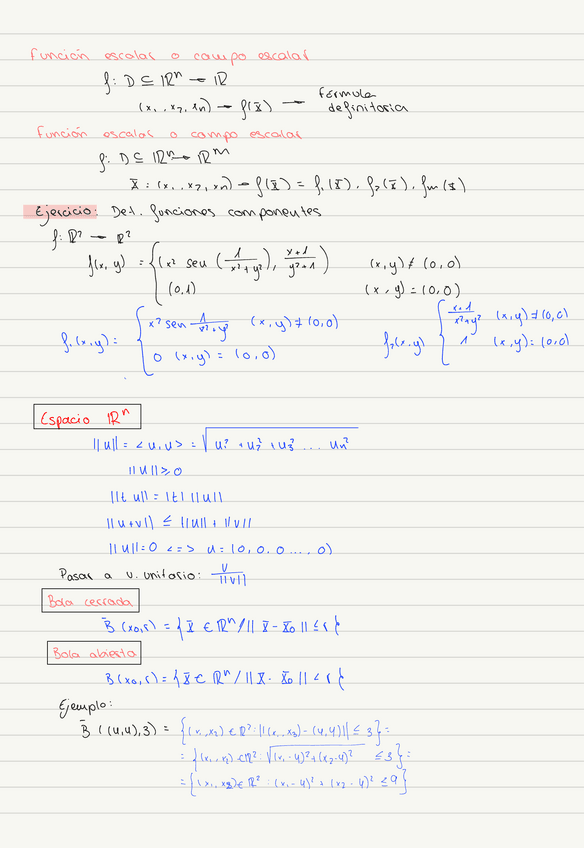 Función escalar o campo escalar
f: D ⊆ ℝⁿ → ℝ
(x₁, x₂, xₙ) → f(x̄) → fórmula definitoria
Función escalar o campo escalar
f: D ⊆ ℝⁿ → ℝᵐ
x̄ : (x₁, x₂, xₙ) → f(x̄) = f₁(x̄), f₂(x̄), fₘ(x̄)
Ejercicio: Det. funciones componentes
f: ℝ² → ℝ²
f(x, y) = { (x² sen (1/(x²+y²)), (x+1)/(y²+1)) (x,y) ≠ (0,0)
(0,1) (x,y) = (0,0)
f₁(x,y) = { x² sen 1/(x²+y²) (x,y) ≠ (0,0) f₂(x,y) { (x+1)/(x²+y²) (x,y) ≠ (0,0)
0 (x,y) = (0,0) 1 (x,y) = (0,0)
Espacio ℝⁿ
||u|| = <u,u> = √(u₁² + u₂² + u₃² ... uₙ²)
||u|| ≥ 0
||t u|| = |t| ||u||
||u+v|| ≤ ||u|| + ||v||
||u|| = 0 <=> u = (0, 0, 0 ..., 0)
Pasar a v. unitario: v/||v||
Bola cerrada
B̄ (x₀, r) = { x̄ ∈ ℝⁿ / || x̄ - x̄₀ || ≤ r }
Bola abierta
B (x₀, r) = { x̄ ∈ ℝⁿ / || x̄ - x̄₀ || < r }
Ejemplo:
B̄ ((4,4),3) = {(x₁, x₂) ∈ ℝ² : ||(x₁, x₂) - (4,4)|| ≤ 3} =
= {(x₁, x₂) ∈ ℝ² : √((x₁-4)² + (x₂-4)²) ≤ 3} =
= {(x₁, x₂) ∈ ℝ² : (x₁-4)² + (x₂-4)² ≤ 9}